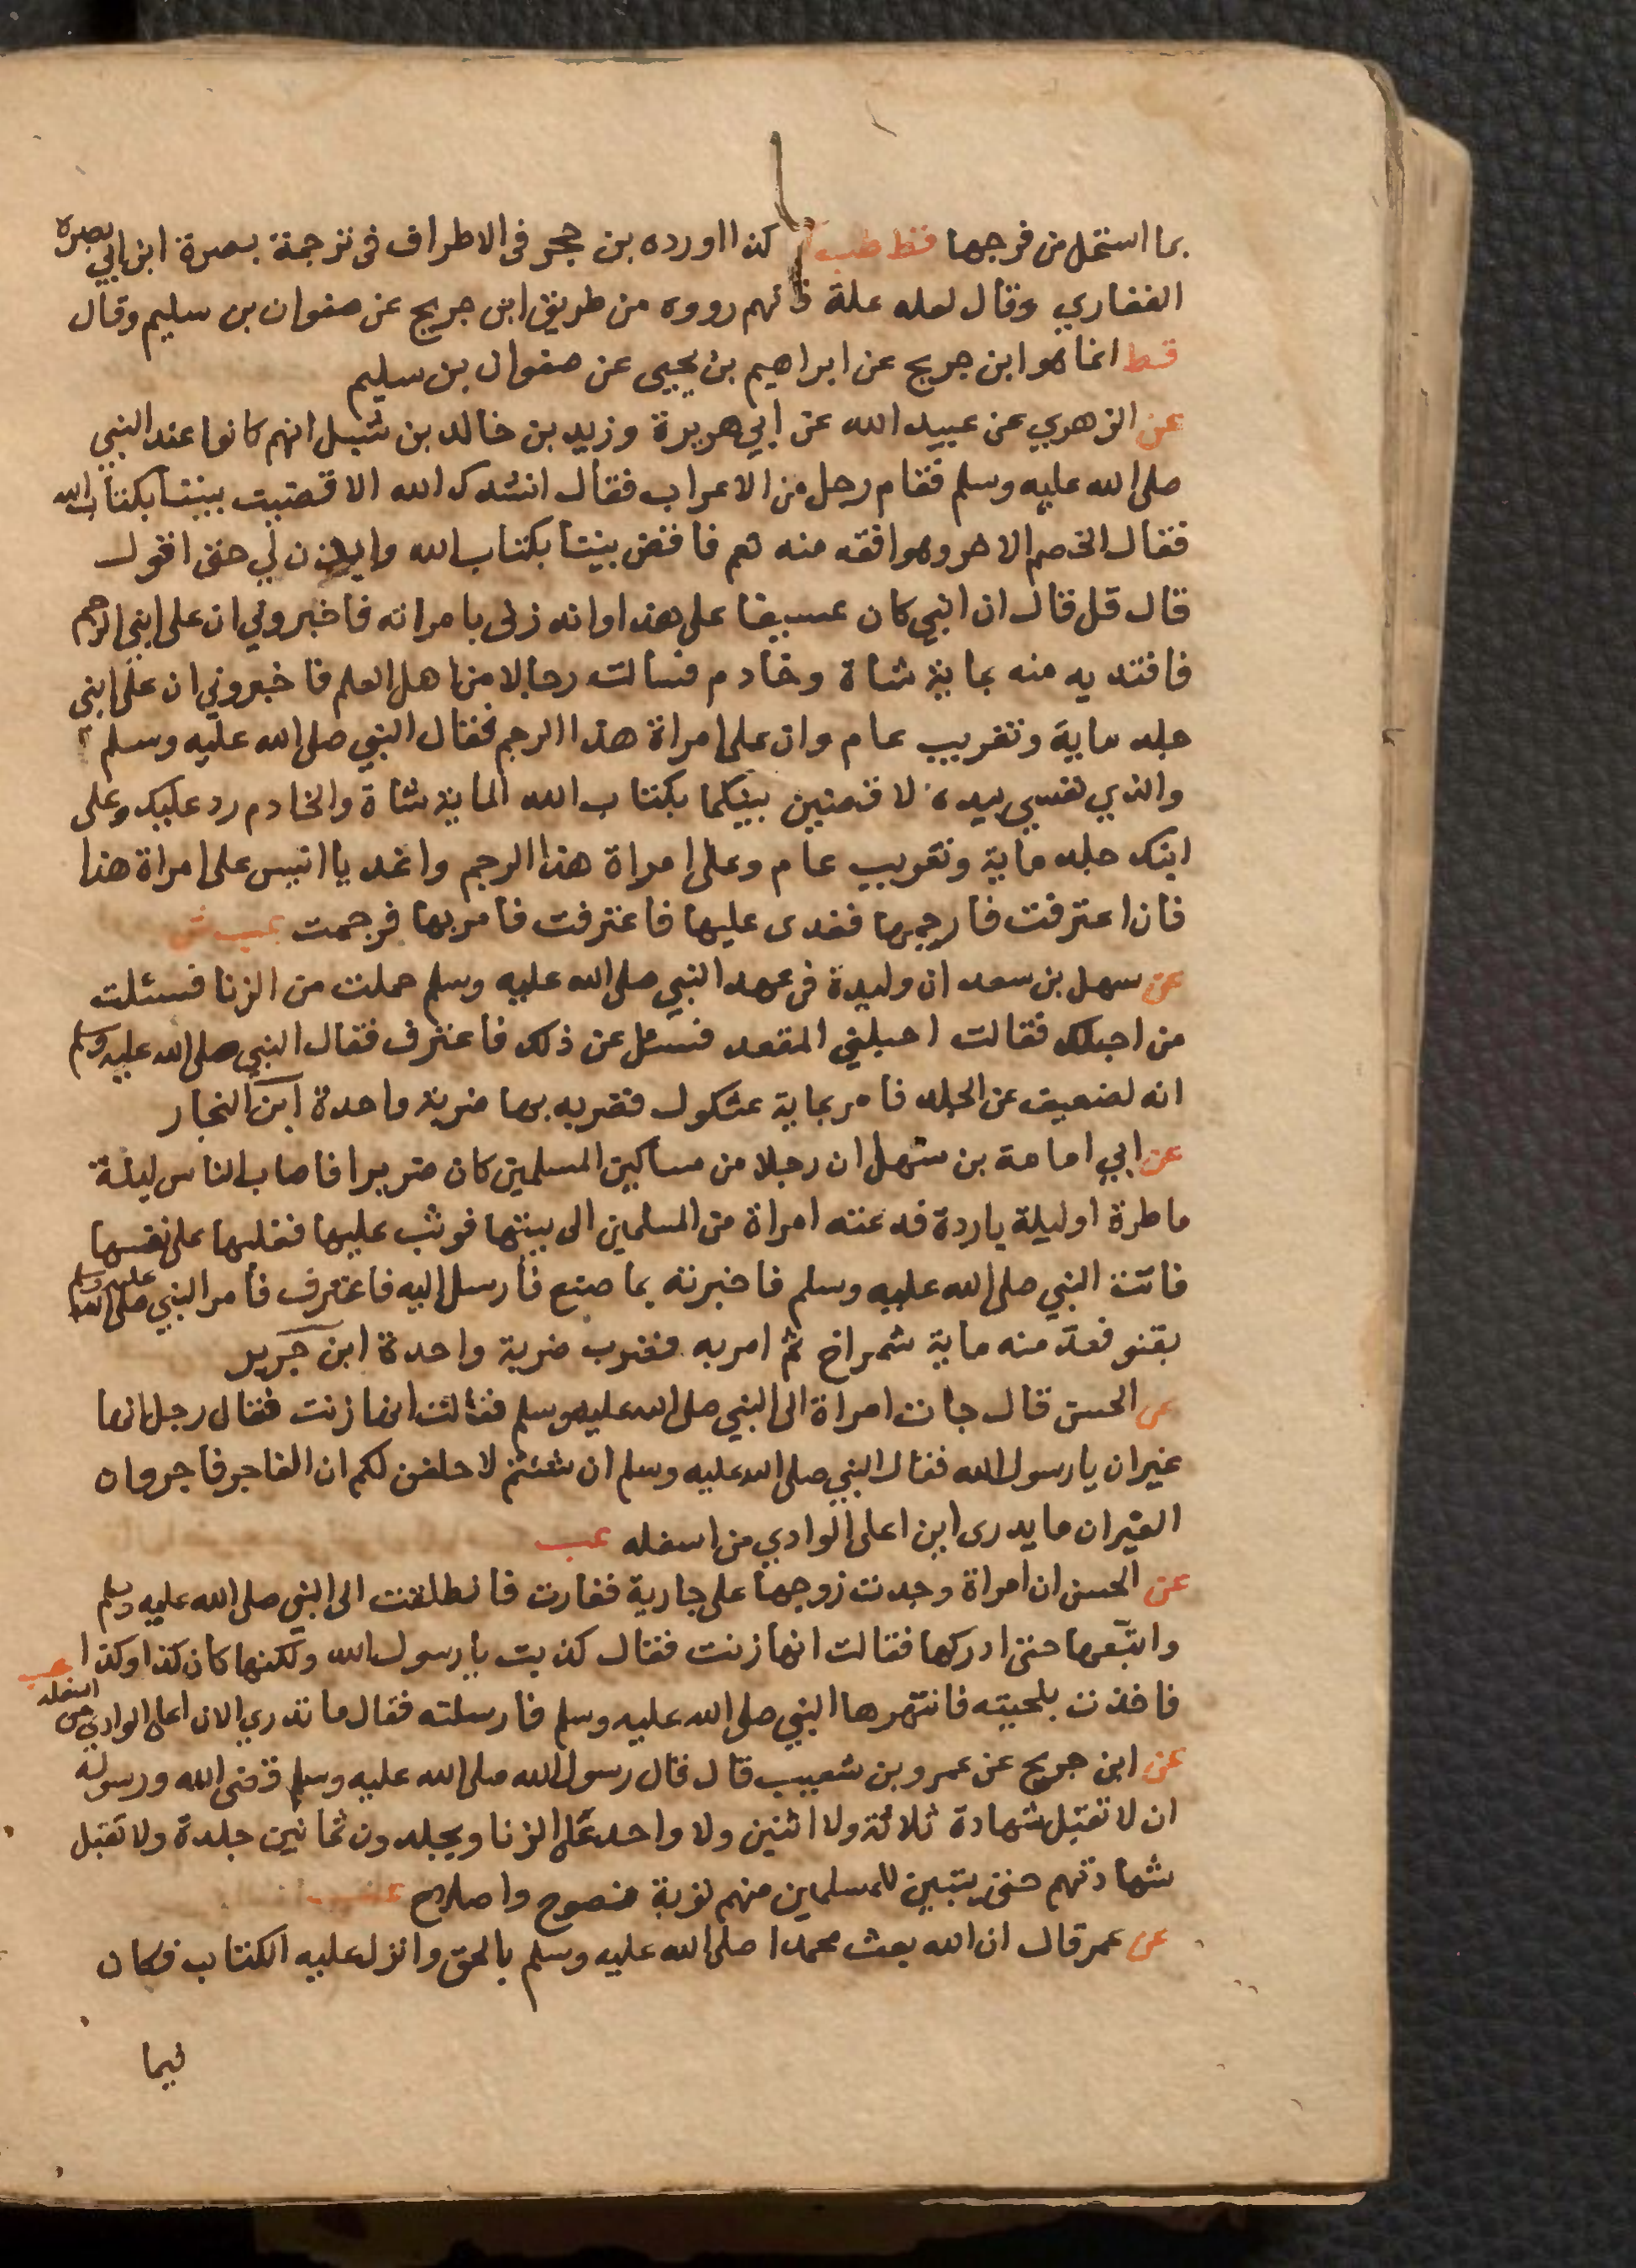 بما استحل من فرجها قط طب ك كذا اورده بن حجر فى الاطراف فى ترجمة بصرة ابن ابي بصرة
الغفاري وقال لعله علة فانهم رووه من طريق ابن جريج عن صفوان بن سليم وقال
قط انما هو ابن جريج عن ابراهيم بن يحيى عن صفوان بن سليم
عن الزهري عن عبيد الله عن ابي هريرة وزيد بن خالد بن شبل انهم كانوا عند النبي
صلى الله عليه وسلم فقام رجل من الاعراب فقال انشدك الله الا قضيت بيننا بكتاب الله
فقال الخصم الاخر وهو افقه منه نعم فاقض بيننا بكتاب الله وايذن لي حتى اقول
قال قل قال ان ابني كان عسيفا على هذا وانه زنى بامراته فاخبروني ان على ابني الرجم
فافتديه منه بماية شاة وخادم فسالت رجالا من اهل العلم فاخبروني ان على ابني
جلد ماية وتغريب عام وان على امراة هذا الرجم فقال النبي صلى الله عليه وسلم
والذي نفسي بيده لاقضين بينكما بكتاب الله الماية شاة والخادم رد عليك وعلى
ابنك جلد ماية وتغريب عام وعلى امراة هذا الرجم واغد يا انيس على امراة هذا
فان اعترفت فارجمها فغدى عليها فاعترفت فامر بها فرجمت عب ش
عن سهل بن سعد ان وليدة فى عهد النبي صلى الله عليه وسلم حملت من الزنا فسئلت
من احبلك فقالت احبلني المقعد فسئل عن ذلك فاعترف فقال النبي صلى الله عليه وسلم
انه لضعيف عن الجلد فامر بماية عثكول فضربه بها ضربة واحدة ابن النجار
عن ابي امامة بن سهل ان رجلا من مساكين المسلمين كان ضريرا فاصاب الناس ليلة
ماطرة او ليلة باردة فدعته امراة من المسلمين الى بيتها فوثب عليها فغلبها على نفسها
فاتت النبي صلى الله عليه وسلم فاخبرته بما صنع فارسل اليه فاعترف فامر النبي صلى الله عليه وسلم
بقنو فعد منه ماية شمراخ ثم امر به فضرب ضربة واحدة ابن جرير
عن الحسن قال جات امراة الى النبي صلى الله عليه وسلم فقالت انها زنت فقال رجل انها
غيران يا رسول الله فقال النبي صلى الله عليه وسلم ان شئتم لاحلفن لكم ان الفاجر فاجر وان
الغيران ما يدرى اين اعلى الوادي من اسفله عب
عن الحسن ان امراة وجدت زوجها على جارية فغارت فانطلقت الى النبي صلى الله عليه وسلم
واتبعها حتى ادركها فقالت انها زنت فقال كذبت يا رسول الله ولكنها كان كذا وكذا عب
فاخذت بلحيته فانتهرها النبي صلى الله عليه وسلم فارسلته فقال ما تدري الان اعلى الوادي من اسفله
عن ابن جريج عن عمرو بن شعيب قال قال رسول الله صلى الله عليه وسلم قضى الله ورسوله
ان لا تقبل شهادة ثلاثة ولا اثنين ولا واحد على الزنا ويجلدون ثمانين جلدة ولا تقبل
شهادتهم حتى يتبين للمسلمين منهم توبة نصوح واصلاح
عن عمر قال ان الله بعث محمدا صلى الله عليه وسلم بالحق وانزل عليه الكتاب فكان
فيما